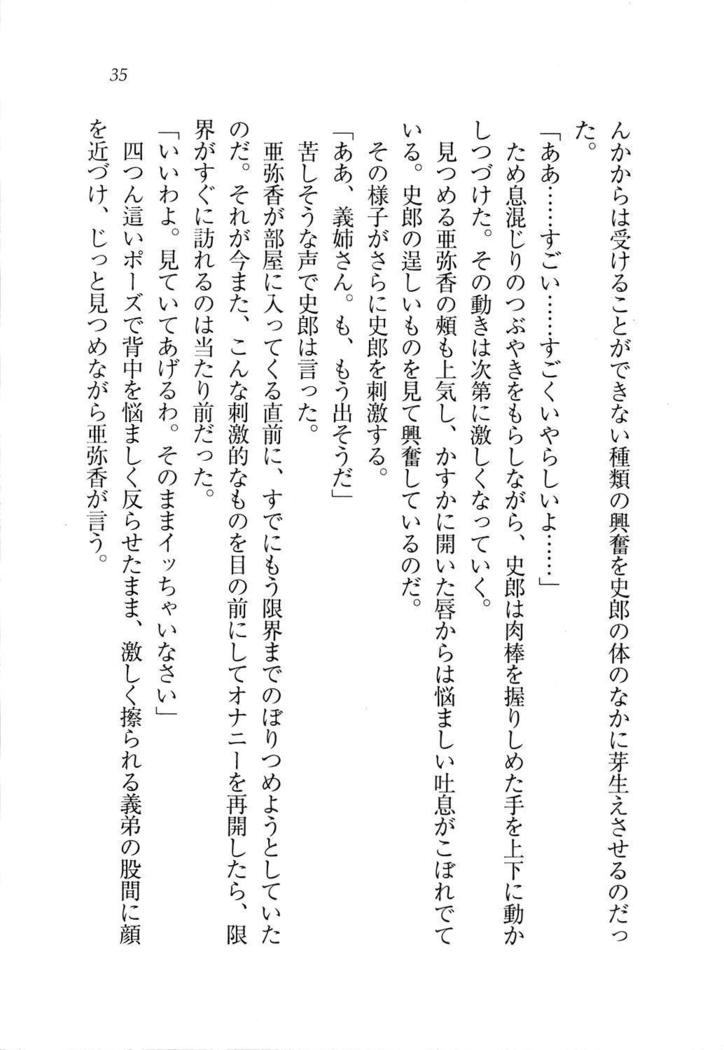 35
んかからは受けることができない種類の興奮を史郎の体のなかに芽生えさせるのだっ
た。
「ああ……すごい……すごくいやらしいよ……」
ため息混じりのつぶやきをもらしながら、史郎は肉棒を握りしめた手を上下に動か
しつづけた。その動きは次第に激しくなっていく。
見つめる亜弥香の頬も上気し、かすかに開いた唇からは悩ましい吐息がこぼれでて
いる。史郎の逞しいものを見て興奮しているのだ。
その様子がさらに史郎を刺激する。
「ああ、義姉さん。も、もう出そうだ」
苦しそうな声で史郎は言った。
亜弥香が部屋に入ってくる直前に、すでにもう限界までのぼりつめようとしていた
のだ。それが今また、こんな刺激的なものを目の前にしてオナニーを再開したら、限
界がすぐに訪れるのは当たり前だった。
「いいわよ。見ていてあげるわ。そのままイッちゃいなさい」
四つん這いポーズで背中を悩ましく反らせたまま、激しく擦られる義弟の股間に顔
を近づけ、じっと見つめながら亜弥香が言う。